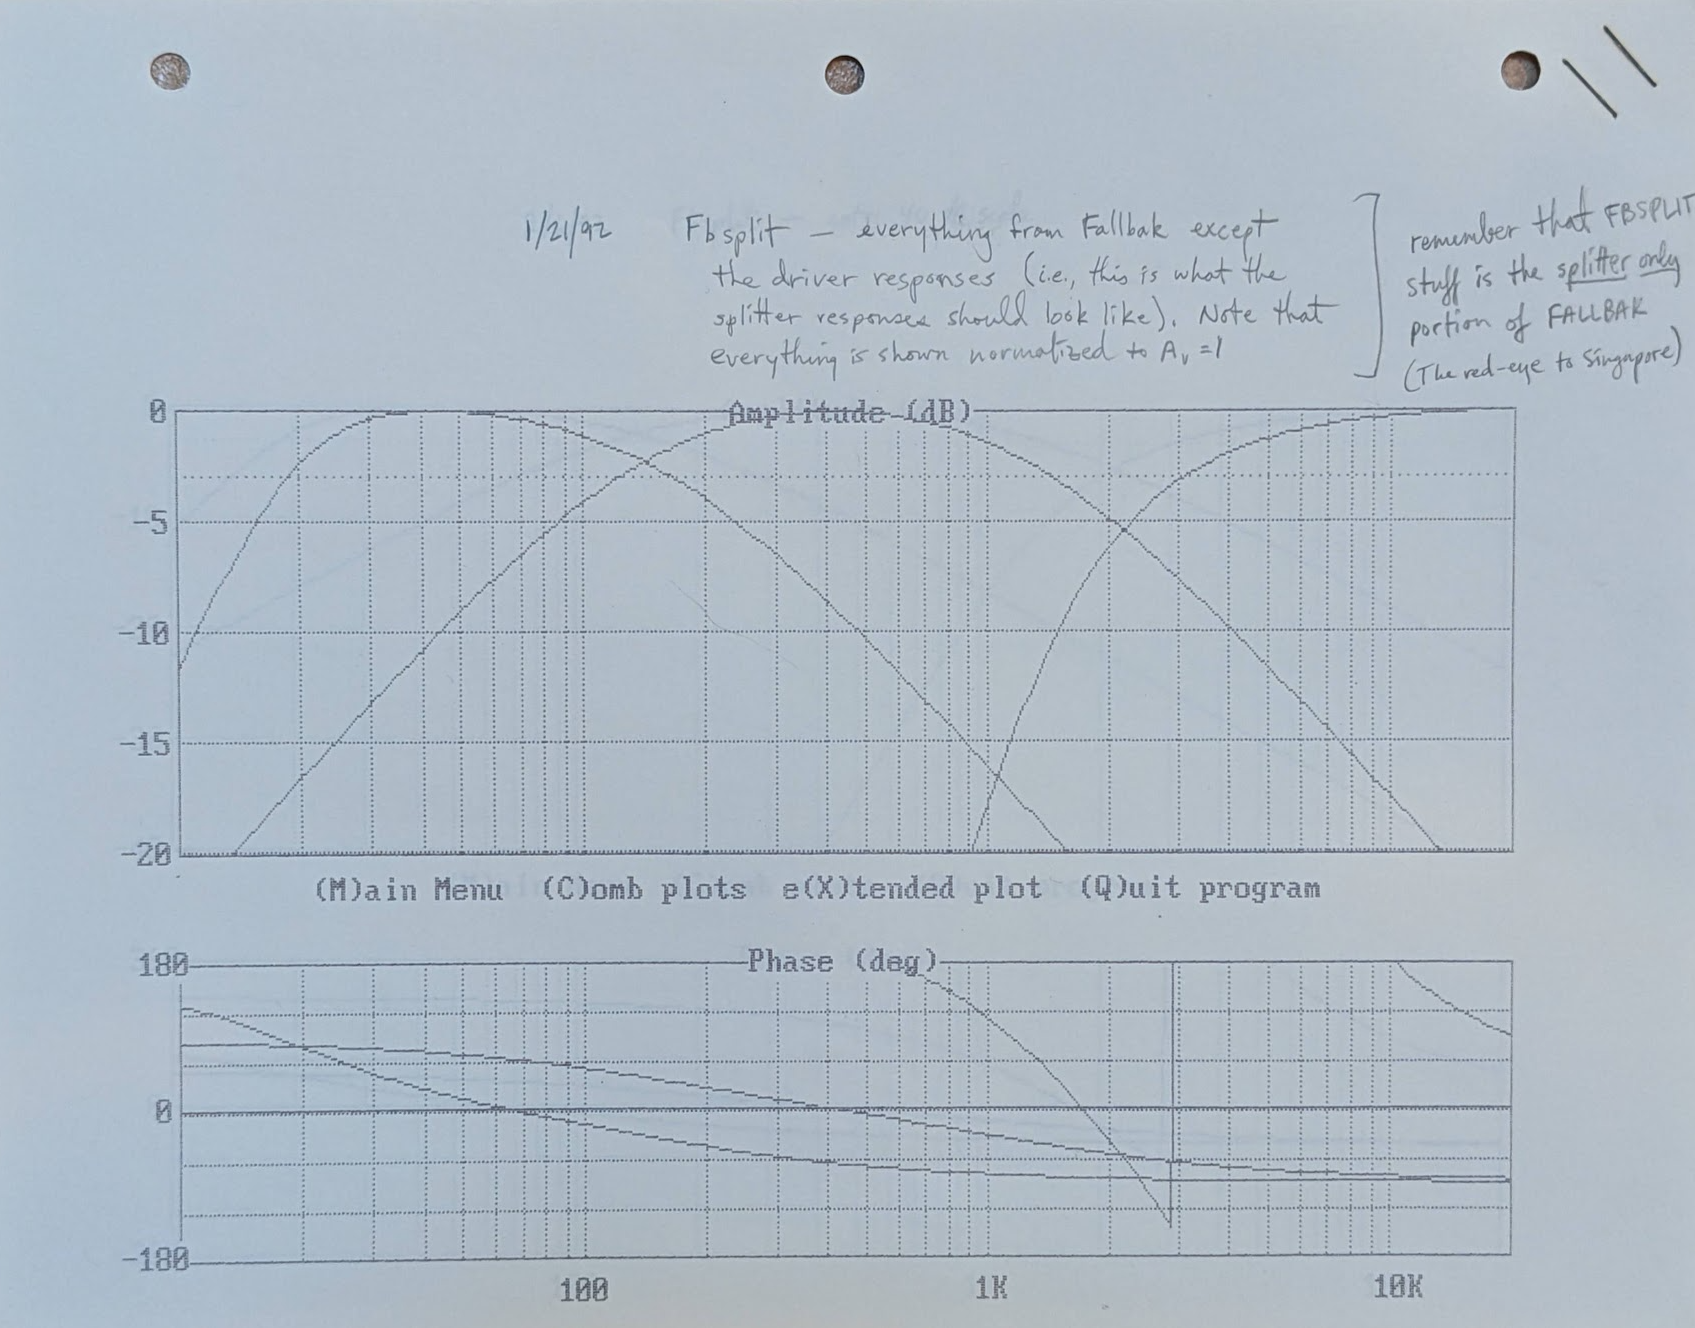 1/21/92 Fbsplit — everything from Fallbak except
the driver responses (i.e., this is what the
splitter responses should look like). Note that
everything is shown normalized to Av =1
remember that FBSPLIT
stuff is the splitter only
portion of FALLBAK
(The red-eye to Singapore)
Amplitude (dB)
0
-5
-10
-15
-20
(M)ain Menu (C)omb plots e(X)tended plot (Q)uit program
Phase (deg)
180
0
-180
100 1K 10K